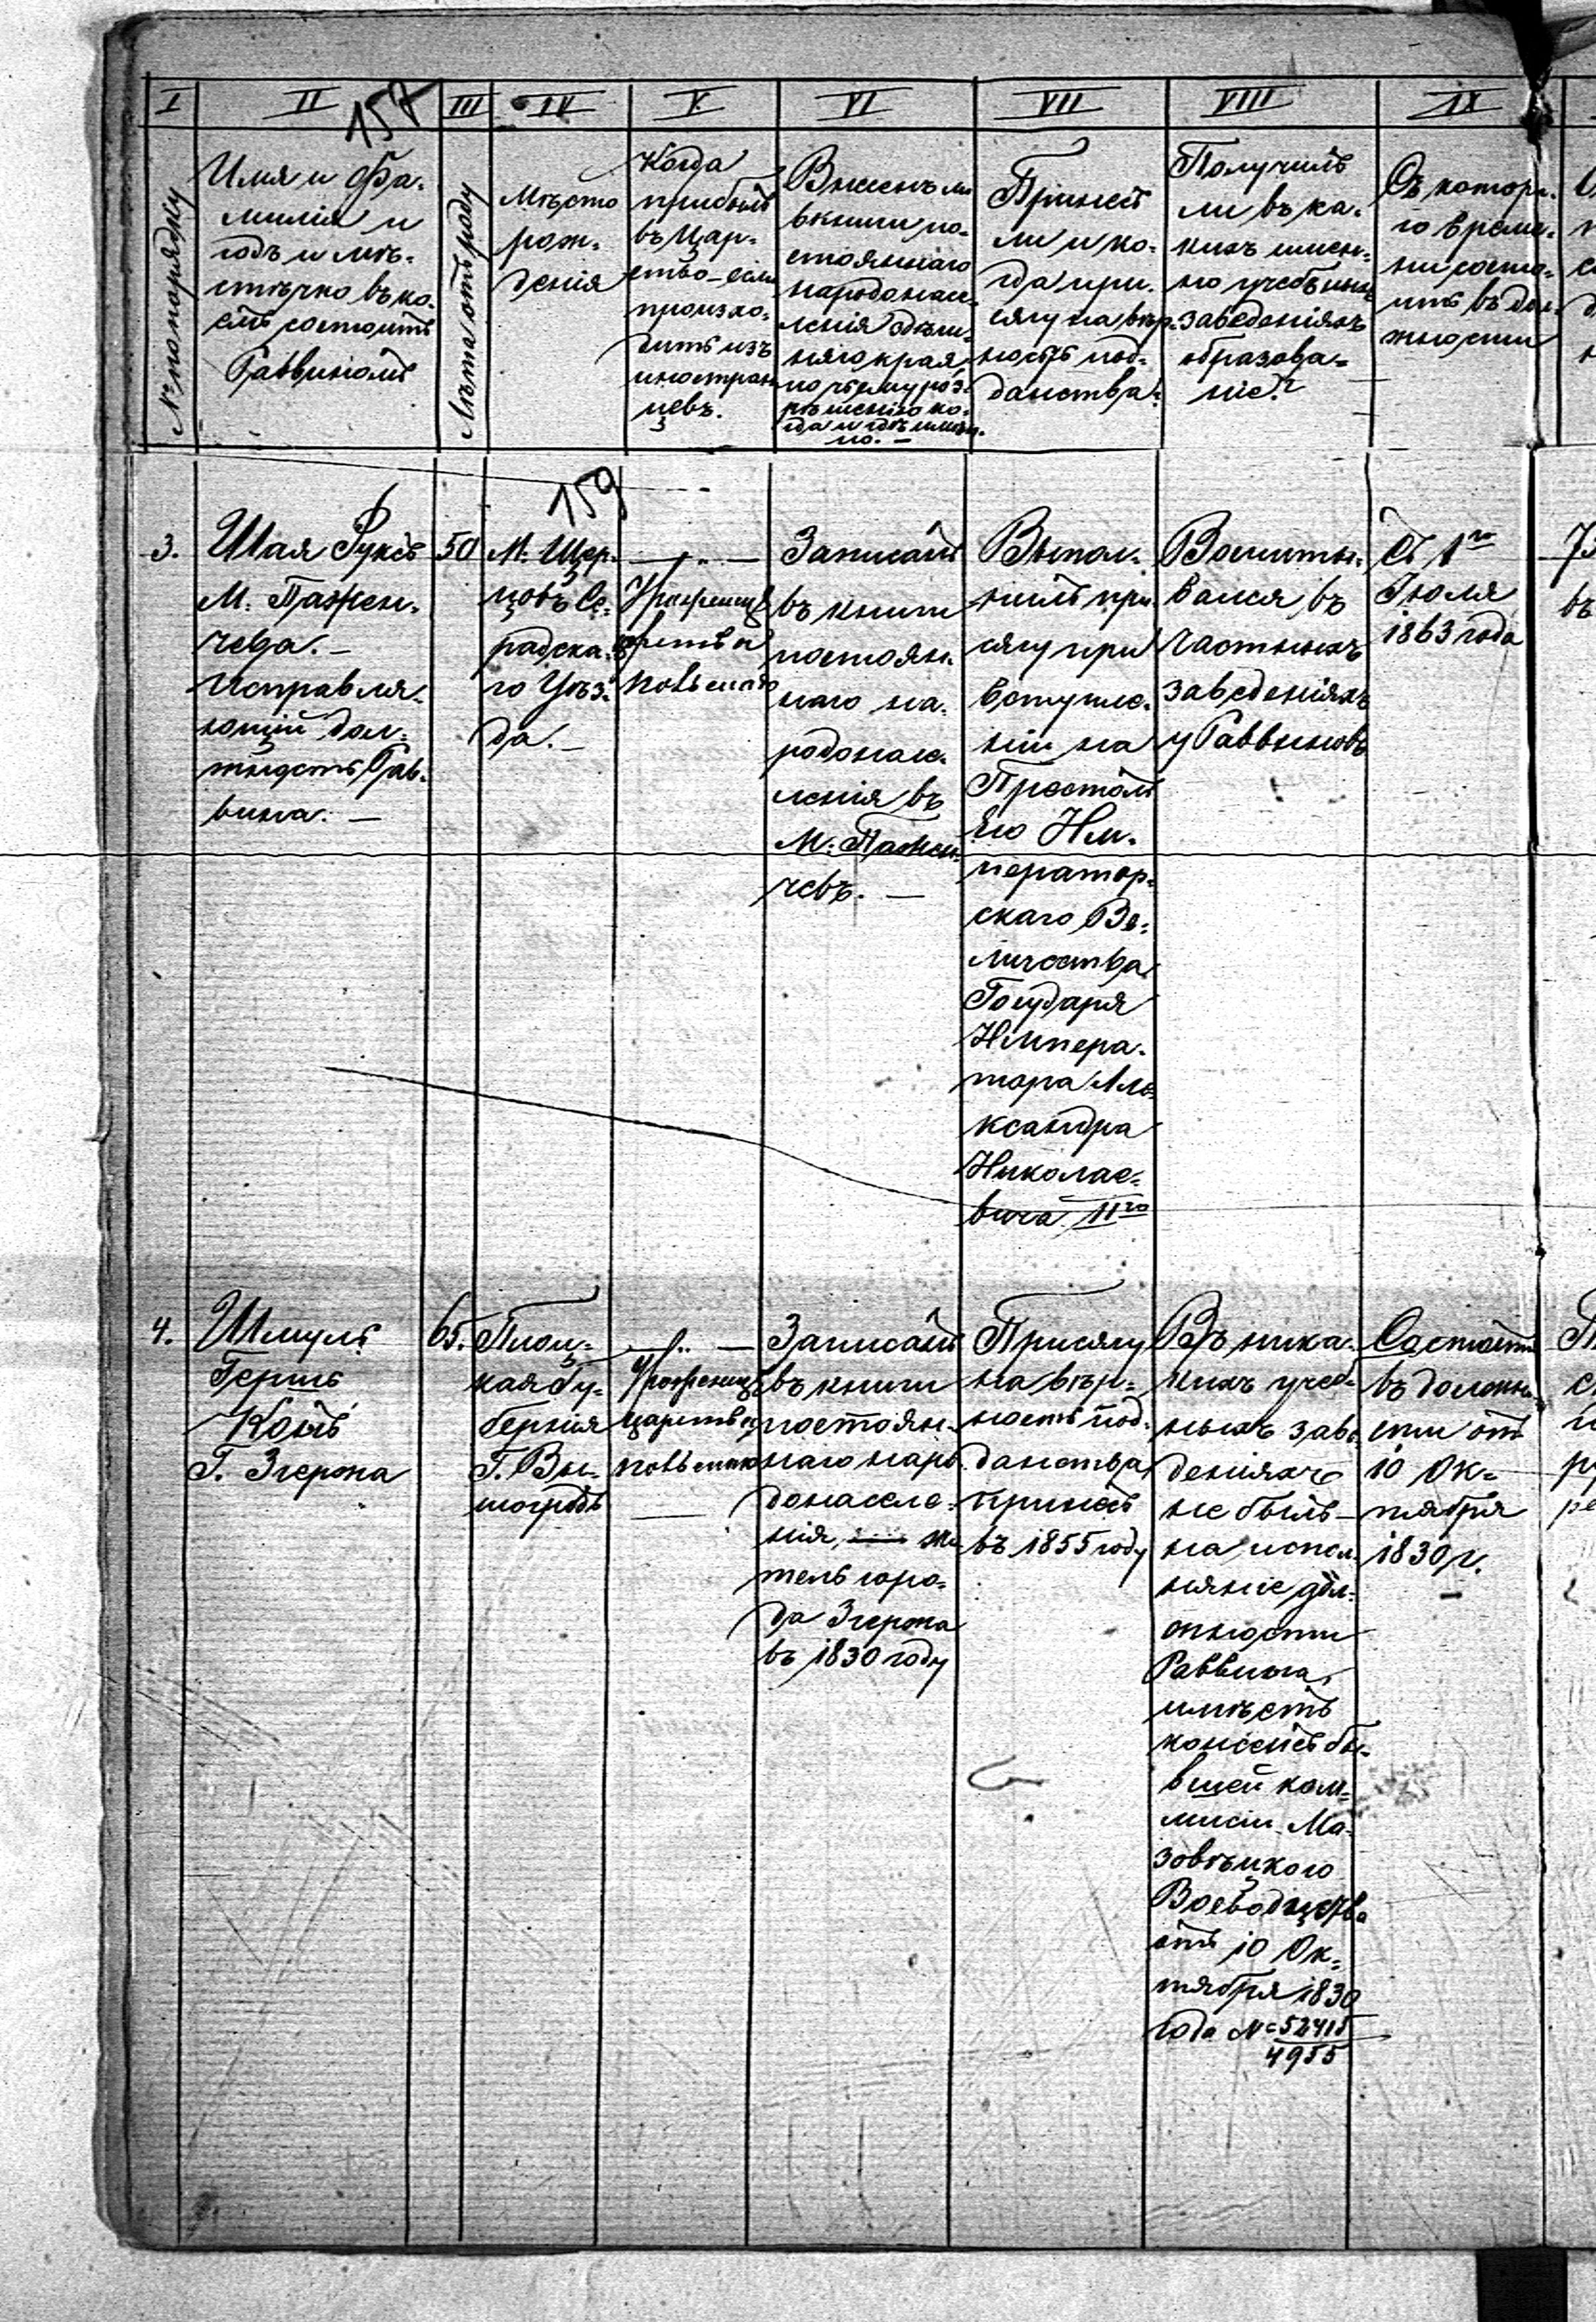 I
II
III
IV
V
VI
VII
VIII
IX
157
№ по порядку
Имя и фа-
милія и
годъ и мѣ-
стѣчко въ ко-
емъ состоитъ
Раввиномъ
Лѣта отъ роду
Мѣсто
рож-
денія
Когда
прибылъ
въ Цар-
ство – если
происхо-
дитъ изъ
иностран
цевъ.
Внесенъ ли
в книги по-
стояннаго
народонасе-
ленія здѣш-
няго края,
по чьему раз-
рѣшенію ко-
гда и гдѣ имен-
но. –
Принесъ
ли и ко-
гда при-
сягу на вѣр-
ность под-
данства?
Получилъ
ли въ ка-
кихъ имен-
но учебныхъ
заведеніяхъ
образова-
ніе?
Съ котора-
го време-
ни состо-
итъ въ дол-
жности
159
3.
Шая Фуксъ
М. Паржен-
чева. –
Исправля-
ющій дол-
жность Рав-
вина. –
50
М. Щер-
цовъ Се-
радска-
го Уѣз-
да. –
– „ –
Уроженецъ
Царства
Польскаго
Записанъ
въ книги
постоян-
наго на-
родонасе-
ленія въ
М. Паржен-
чевъ. –
Выпол-
нилъ при-
сягу при
вступле-
ніи на
Престолъ
Его Им-
ператор-
скаго Ве-
личества
Государя
Импера-
тора Але-
ксандра
Николае-
вича II го
Воспиты-
вался въ
частныхъ
заведеніяхъ
у Раввиновъ
Съ 1 го
Іюля
1863 года
4.
Шмуль
Гершъ
Конъ
Г. Згержа
65.
Плоц-
кая Гу-
бернія
Г. Вы-
шогродъ
– „ –
Уроженецъ
Царства
Польскаго
Записанъ
въ книги
постоян-
наго наро-
донаселе-
нія, жи-
тель горо-
да Згержа
въ 1830 году
Присягу
на вѣр-
ность под-
данства
принесъ
въ 1855 году
Въ ника-
кихъ учеб-
ныхъ заве-
деніяхъ
не былъ –
на испол-
неніе дол-
жности
Раввина,
имѣетъ
консенсъ бы-
вшей ком-
мисіи Ма-
зовѣцкого
Воеводства
отъ 10 Ок-
тября 1830
года № 52415
4955
Состоитъ
въ должно-
сти отъ
10 Ок-
тября
1830 г.